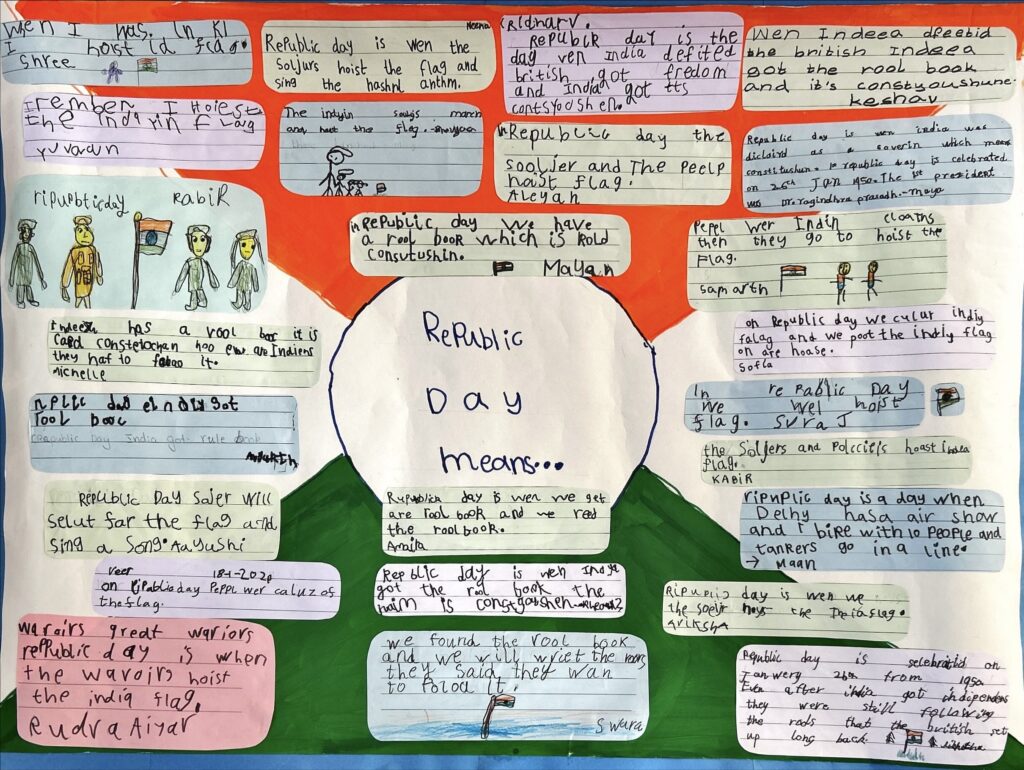 Republic
Day
means...
When I was. In K1
I hoist id flag.
shree
Republic day is wen the
Soljurs hoist the flag and
sing the hashnl anthm.
Republr day is the
day ven India defited
british got fredom
and India got its
Wen Indeea dfeetid
the british Indeea
got the rool book
and it's constyoushune.
keshav
I remember I Hoiest
the Indian flvag
yuvaan
The indyin march
and the flag.
In Republic day the
sooljer and The peelp
hoist flag.
Aleyah
Republic day is wen india was
diclaird as a saverin which means
constitushun. republic day is celebrated
on 26th Jan 1950. The 1st president
was Dr. prasadh.-maya
ripupblicday RabiR
In Republic day we have
a rool book which is kold
Consutushin.
Mayan
Pepel wer Indin cloaths
then they go to hoist the
flag.
samarth
has a rool it is
they haf to it.
Michelle
on Republic day we cular indiy
falag and we poot the indiy flag
on are hoase.
sofia
rool booc
Republic Day India got rule book
In re Pablic Day
we wel hoist
flag. Svra J
the Soljers and hoast
flag.
KABIR
Republic Day Soler will
selut far the flag and
sing a Song. Aayushi
Rupublica day is wen we get
are rool book and we reed
the roolbook.
Amita
ripuplic day is a day when
Delhy hasa air show
and 1 bike with 10 people and
tankers go in a line.
→ Maan
Veer
on day Peppl wer caluz of
theflag.
Republic day is wen Indya
got the rool book the
naim is
Ripublic day is wen we
the the India flag.
warairs great wariors
rePPublic day is when
the warairs hoist
the india flag.
Rudra Aiyar
we found the rool book
and we will wriet the
they said they wan
to
Swara
Republic day is selebratid on
Janwery 26th from 1950
Even after india got indipendens
they were still following
the rools that the british set
up long back.